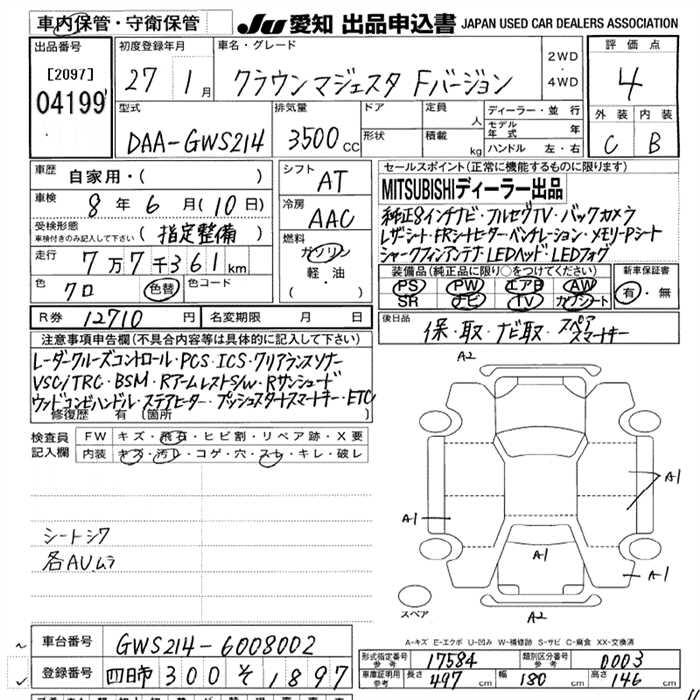 車内保管・守衛保管
JU 愛知 出品申込書 JAPAN USED CAR DEALERS ASSOCIATION
出品番号
[2097]
04199
初度登録年月
27 1月
車名・グレード
クラウンマジェスタ Fバージョン
2WD
・
4WD
評価点
4
外装 内装
C B
型式
DAA-GWS214
排気量
3500CC
ドア
形状
定員
人
積載
kg
ディーラー・並行
モデル年式 年
ハンドル 左・右
車歴
自家用・( )
車検
8年6月(10日)
受検形態
車検付きのみ記入して下さい
(指定整備)
走行
7万7千361km
色
クロ
色替
色コード
シフト
AT
冷房
AAC
燃料
ガソリン
軽・油
セールスポイント(正常に機能するものに限ります)
MITSUBISHIディーラー出品
純正8インチナビ・フルセグTV・バックカメラ
レザーシート・FRシートヒーター・ベンチレーション・メモリーPシート
シャークフィンアンテナ・LEDヘッド・LEDフォグ
装備品(純正品に限り○をつけてください)
PS PW エアB AW
SR ナビ TV カワシート
新車保証書
有・無
R券 12710円
名変期限 月 日
後日品
保・取・ナビ取・スペア
スマートキー
注意事項申告欄(不具合内容等は具体的に記入して下さい)
レーダークルーズコントロール・PCS・ICS・クリアランスソナー
VSC/TRC・BSM・RアームレストS/W・Rサンシェード
ウッドコンビハンドル・ステアヒーター・プッシュスタートスマートキー・ETC
修復歴 有(箇所
検査員
記入欄
FW キズ・飛石・ヒビ割・リペア跡・X要
内装 キズ・汚レ・コゲ・穴・スレ・キレ・破レ
シートシワ
各AU.ムラ
A2
A1
A1
A1
A1
A2
スペア
A-キズ E-エクボ U-凹み W-補修跡 S-サビ C-腐食 XX-交換済
車台番号
GWS214-6008002
登録番号
四日市 300 そ 1897
形式指定番号
参考
17584
類別区分番号
参考
0003
車庫証明用
参考
長さ 497 幅 180 高さ 146